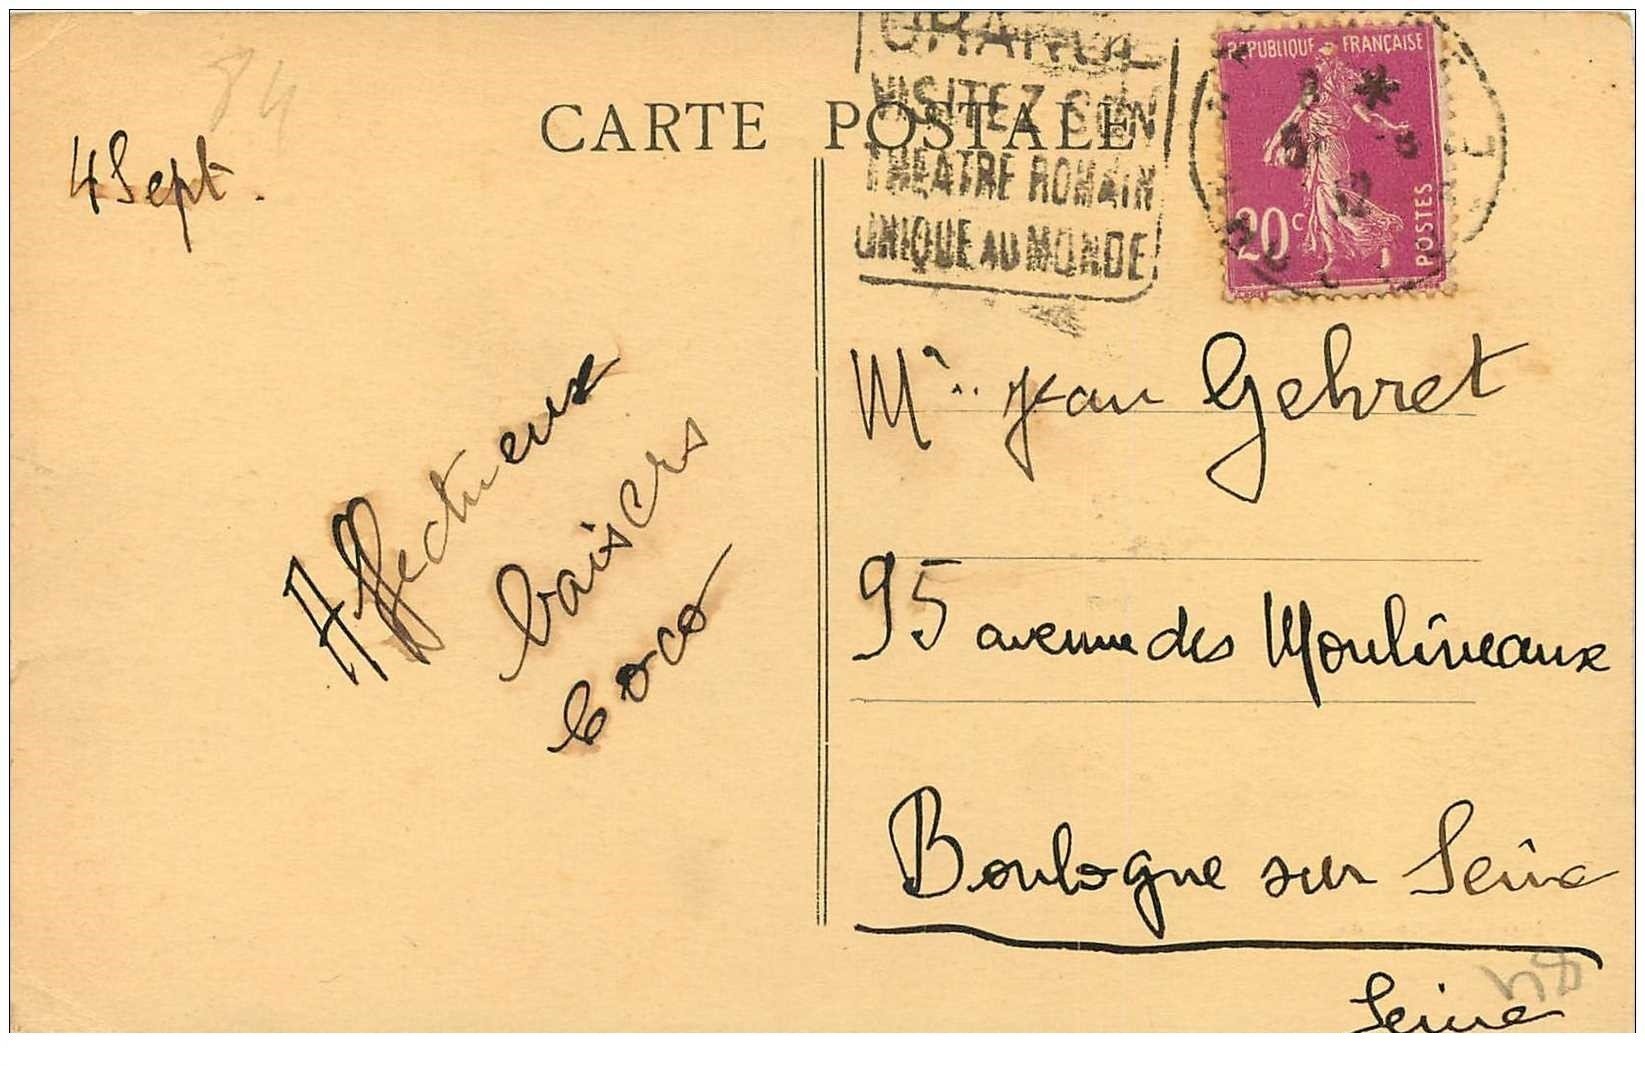 84
CARTE POSTALE
4 Sept.
ORANGE
VISITEZ SON
THEATRE ROMAIN
UNIQUE AU MONDE
REPUBLIQUE FRANÇAISE
20c
POSTES
Affectueux
baisers
Coco
Jean Gehret
95 avenue des Moulineaux
Boulogne sur Seine
Seine
84